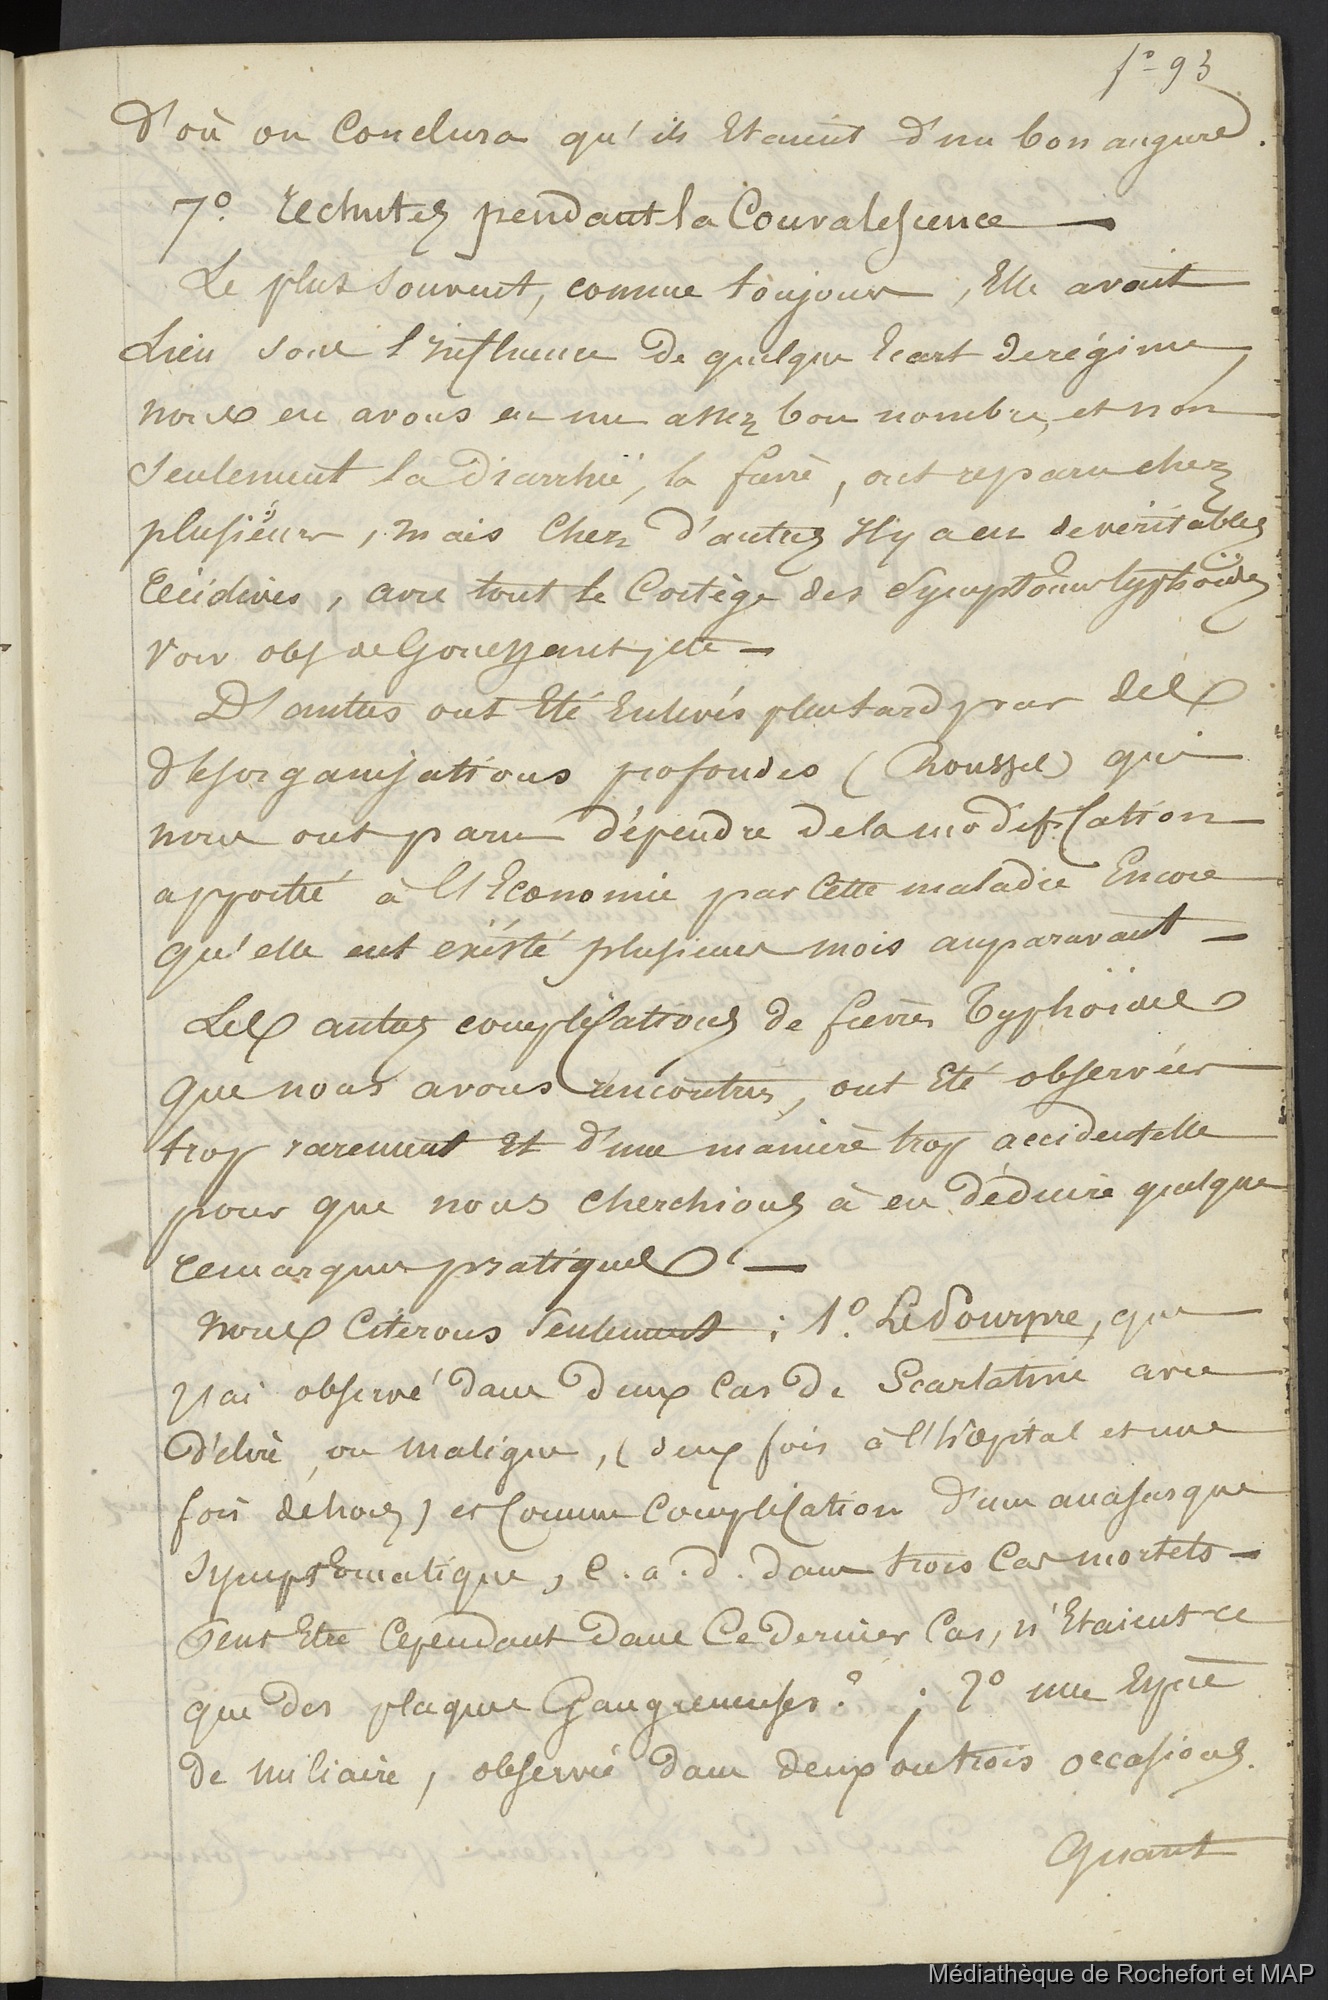 fº 93
D'où on Conclura qu'ils Etaient d'un bon augure.
7º. rechutes pendant la Convalescence —
Le plus souvent, comme toujours, Elle avait
Lieu sous l'influence de quelque Ecart de régime,
nous en avons eu un assez bon nombre, et non
seulement la Diarrhée, la fièvre, ont reparu chez
plusieurs, mais Chez d'autres Il y a eu de veritables
Récidives, avec tout le Cortège des Symptômes typhoïdes
Voir obs de etc —
D'autres ont Eté Enlevés plus tard par des
désorganisations profondes (Roussel) qui
nous ont paru dépendre de la modification
apporté à l'Economie par Cette maladie Encore
qu'elle eut existé plusieurs mois auparavant —
Les autres complications de fièvres Typhoïdes
que nous avons rencontrées, ont Eté observées
trop rarement Et d'une manière trop accidentelle
pour que nous cherchions à en déduire quelque
remarques pratiques. —
Nous Citerons Seulement ; 1º. Le Pourpre, que
j'ai observé dans deux Cas de Scarlatine avec
Délire, ou maligne, (deux fois à l'hôpital et une
fois dehors) et Comme Complication d'une anasarque
Symptomatique, C. a. d. dans trois Cas mortels —
Peut Etre Cependant dans Ce dernier Cas, n'Etaient-ce
que des plaques Gangreneuses ? ; 2º une Espèce
de miliaire, observée dans deux ou trois occasions.
Quant
Médiathèque de Rochefort et MAP